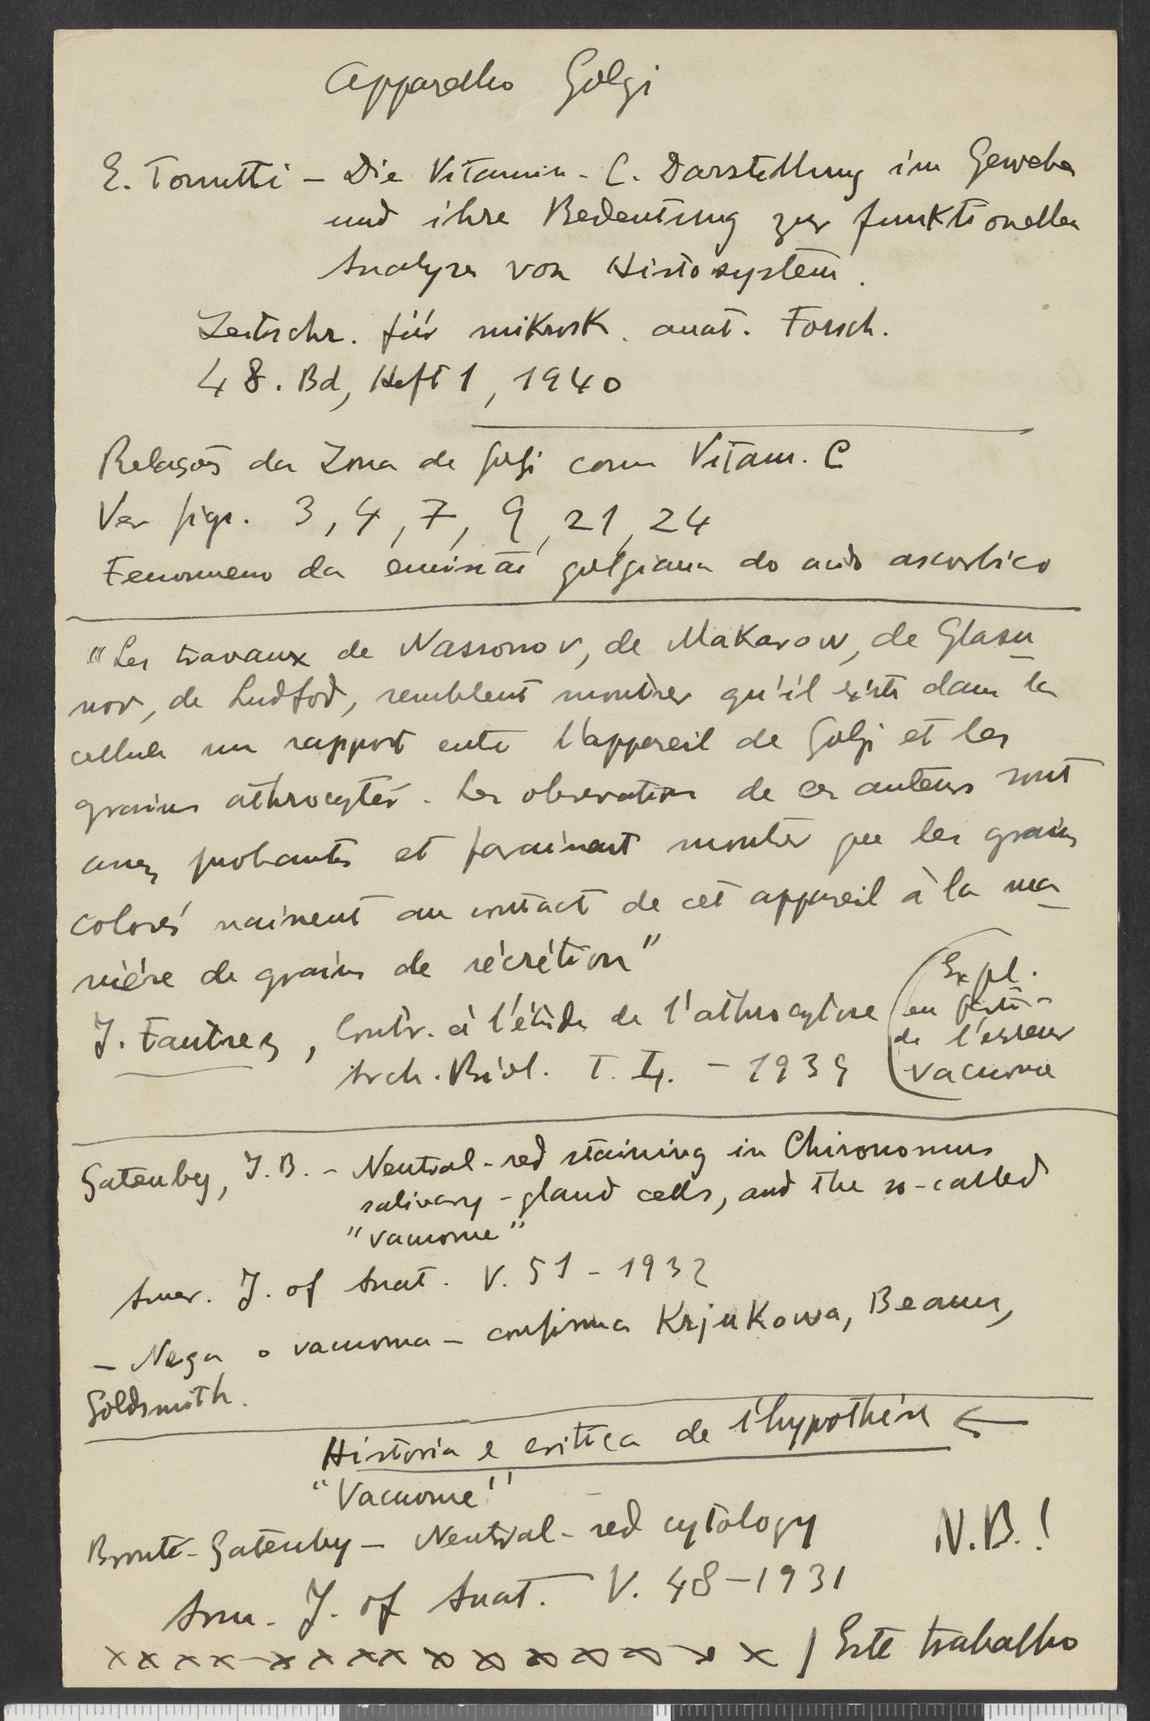 Apparelho Golgi
E. Tonutti - Die Vitamin - C. Darstellung im Gewebe
und ihre Bedeutung zur funktionellen
Analyse von Histosystem.
Zeitschr. für mikrosk. anat. Forsch.
48. Bd, Heft 1, 1940
Relações da Zona de Golgi com Vitam. C
Ver figs. 3, 4, 7, 9, 21, 24
Fenomeno da emissão golgiana do acido ascorbico
"Les travaux de Nassonov, de Makarow, de Glasu
nov, de Ludfod, semblent montrer qu'il existe dans la
cellule un rapport entre l'appareil de Golgi et les
grains athrocytés. Les observations de ces auteurs sont
assez probantes et faraissent montrer que les grains
colorés naissent au contact de cet appareil à la ma
nière de grains de sécrétion"
J. Fautrez, Contr. à l'étude de l'athrocytose
Arch. Biol. T. - 1939
(Expl.
en parti-
de l'erreur
vacuome
Gatenby, J.B. - Neutral-red staining in Chironomus
salivary-gland cells, and the so-called
"vacuome"
Amer. J. of Anat. V. 51 - 1932
- Nega o vacuoma - confirma Krjukowa, Beams,
Goldsmith.
Historia e critica de l'hypothèse ←
"Vacuome"
Bronte-Gatenby - Neutral-red cytology
N.B.!
Am. J. of Anat. V. 48-1931
x x x x x x x x x x x x x x x / Este trabalho